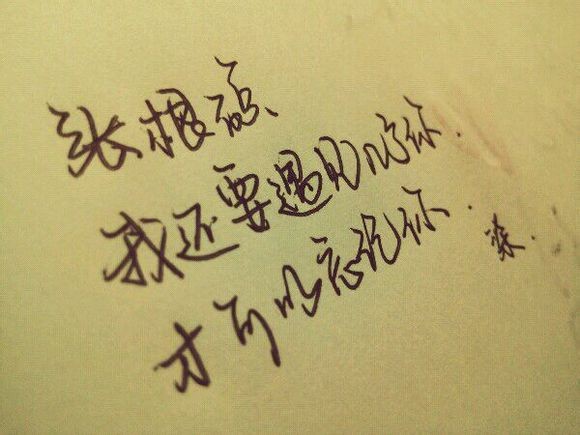 张根硕、
我还要遇见几你.
才可以忘记你.
染.